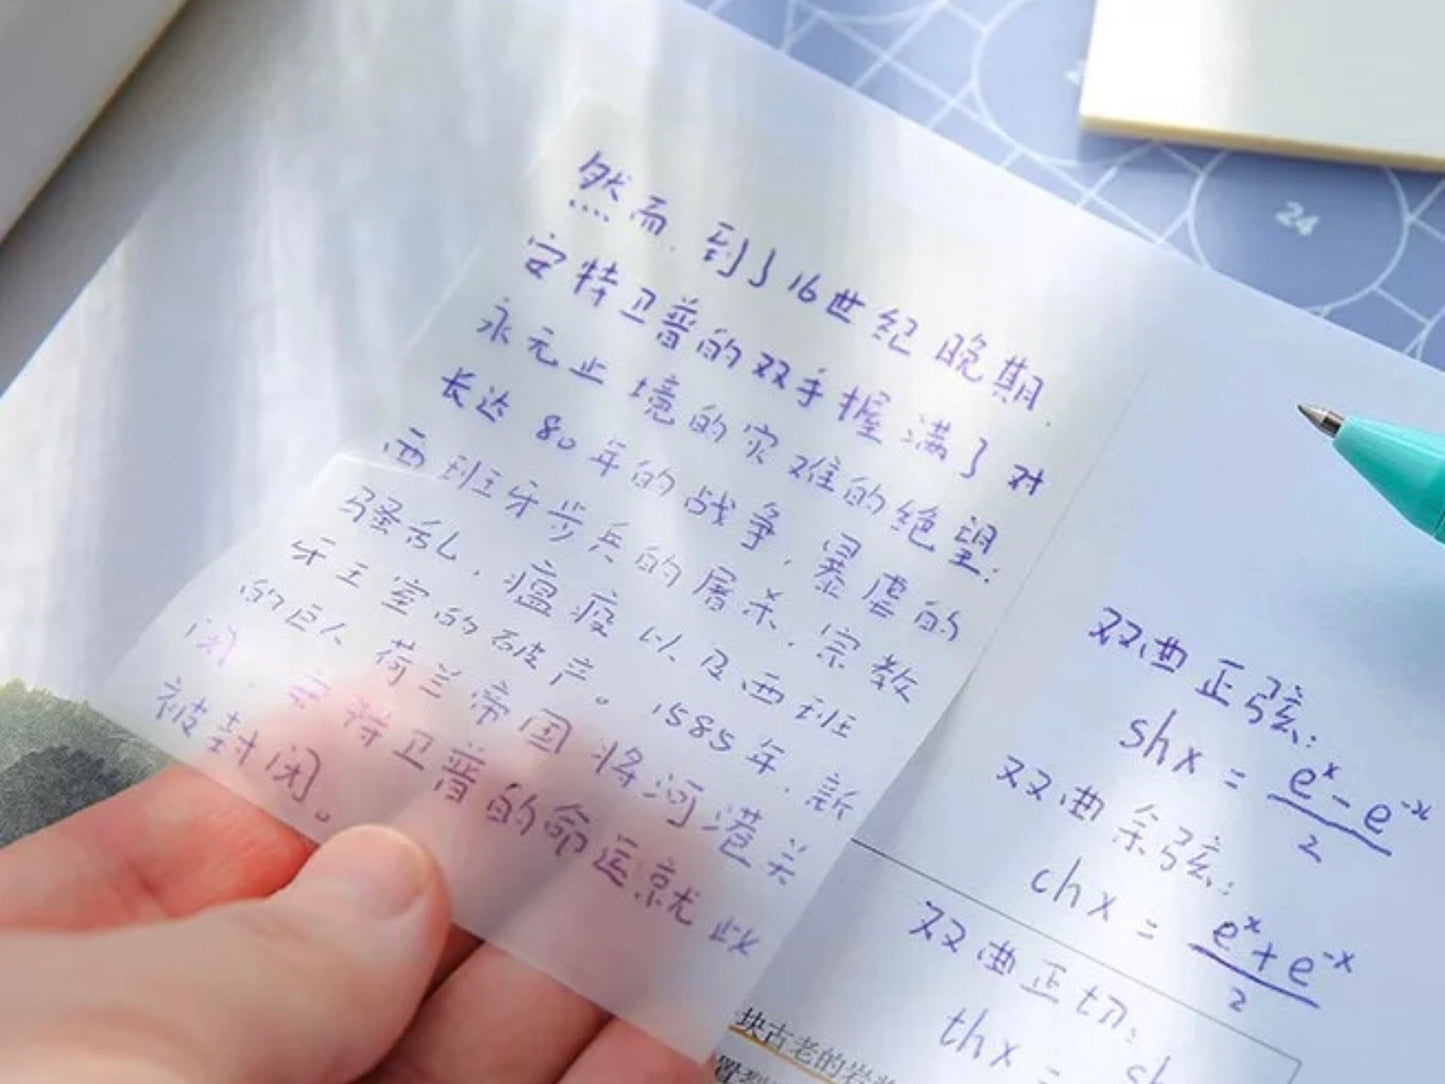 然而,到了16世纪晚期,
安特卫普的双手握满了对
永无止境的灾难的绝望:
长达80年的战争,暴虐的
西班牙步兵的屠杀,宗教
骚乱,瘟疫以及西班
牙王室的破产。1585年,新
的巨人荷兰帝国将河港关
闭,安特卫普的命运就此
被封闭。
双曲正弦:
shx = (e^x - e^-x)/2
双曲余弦:
chx = (e^x + e^-x)/2
双曲正切:
thx = sh
块古老的岩
24